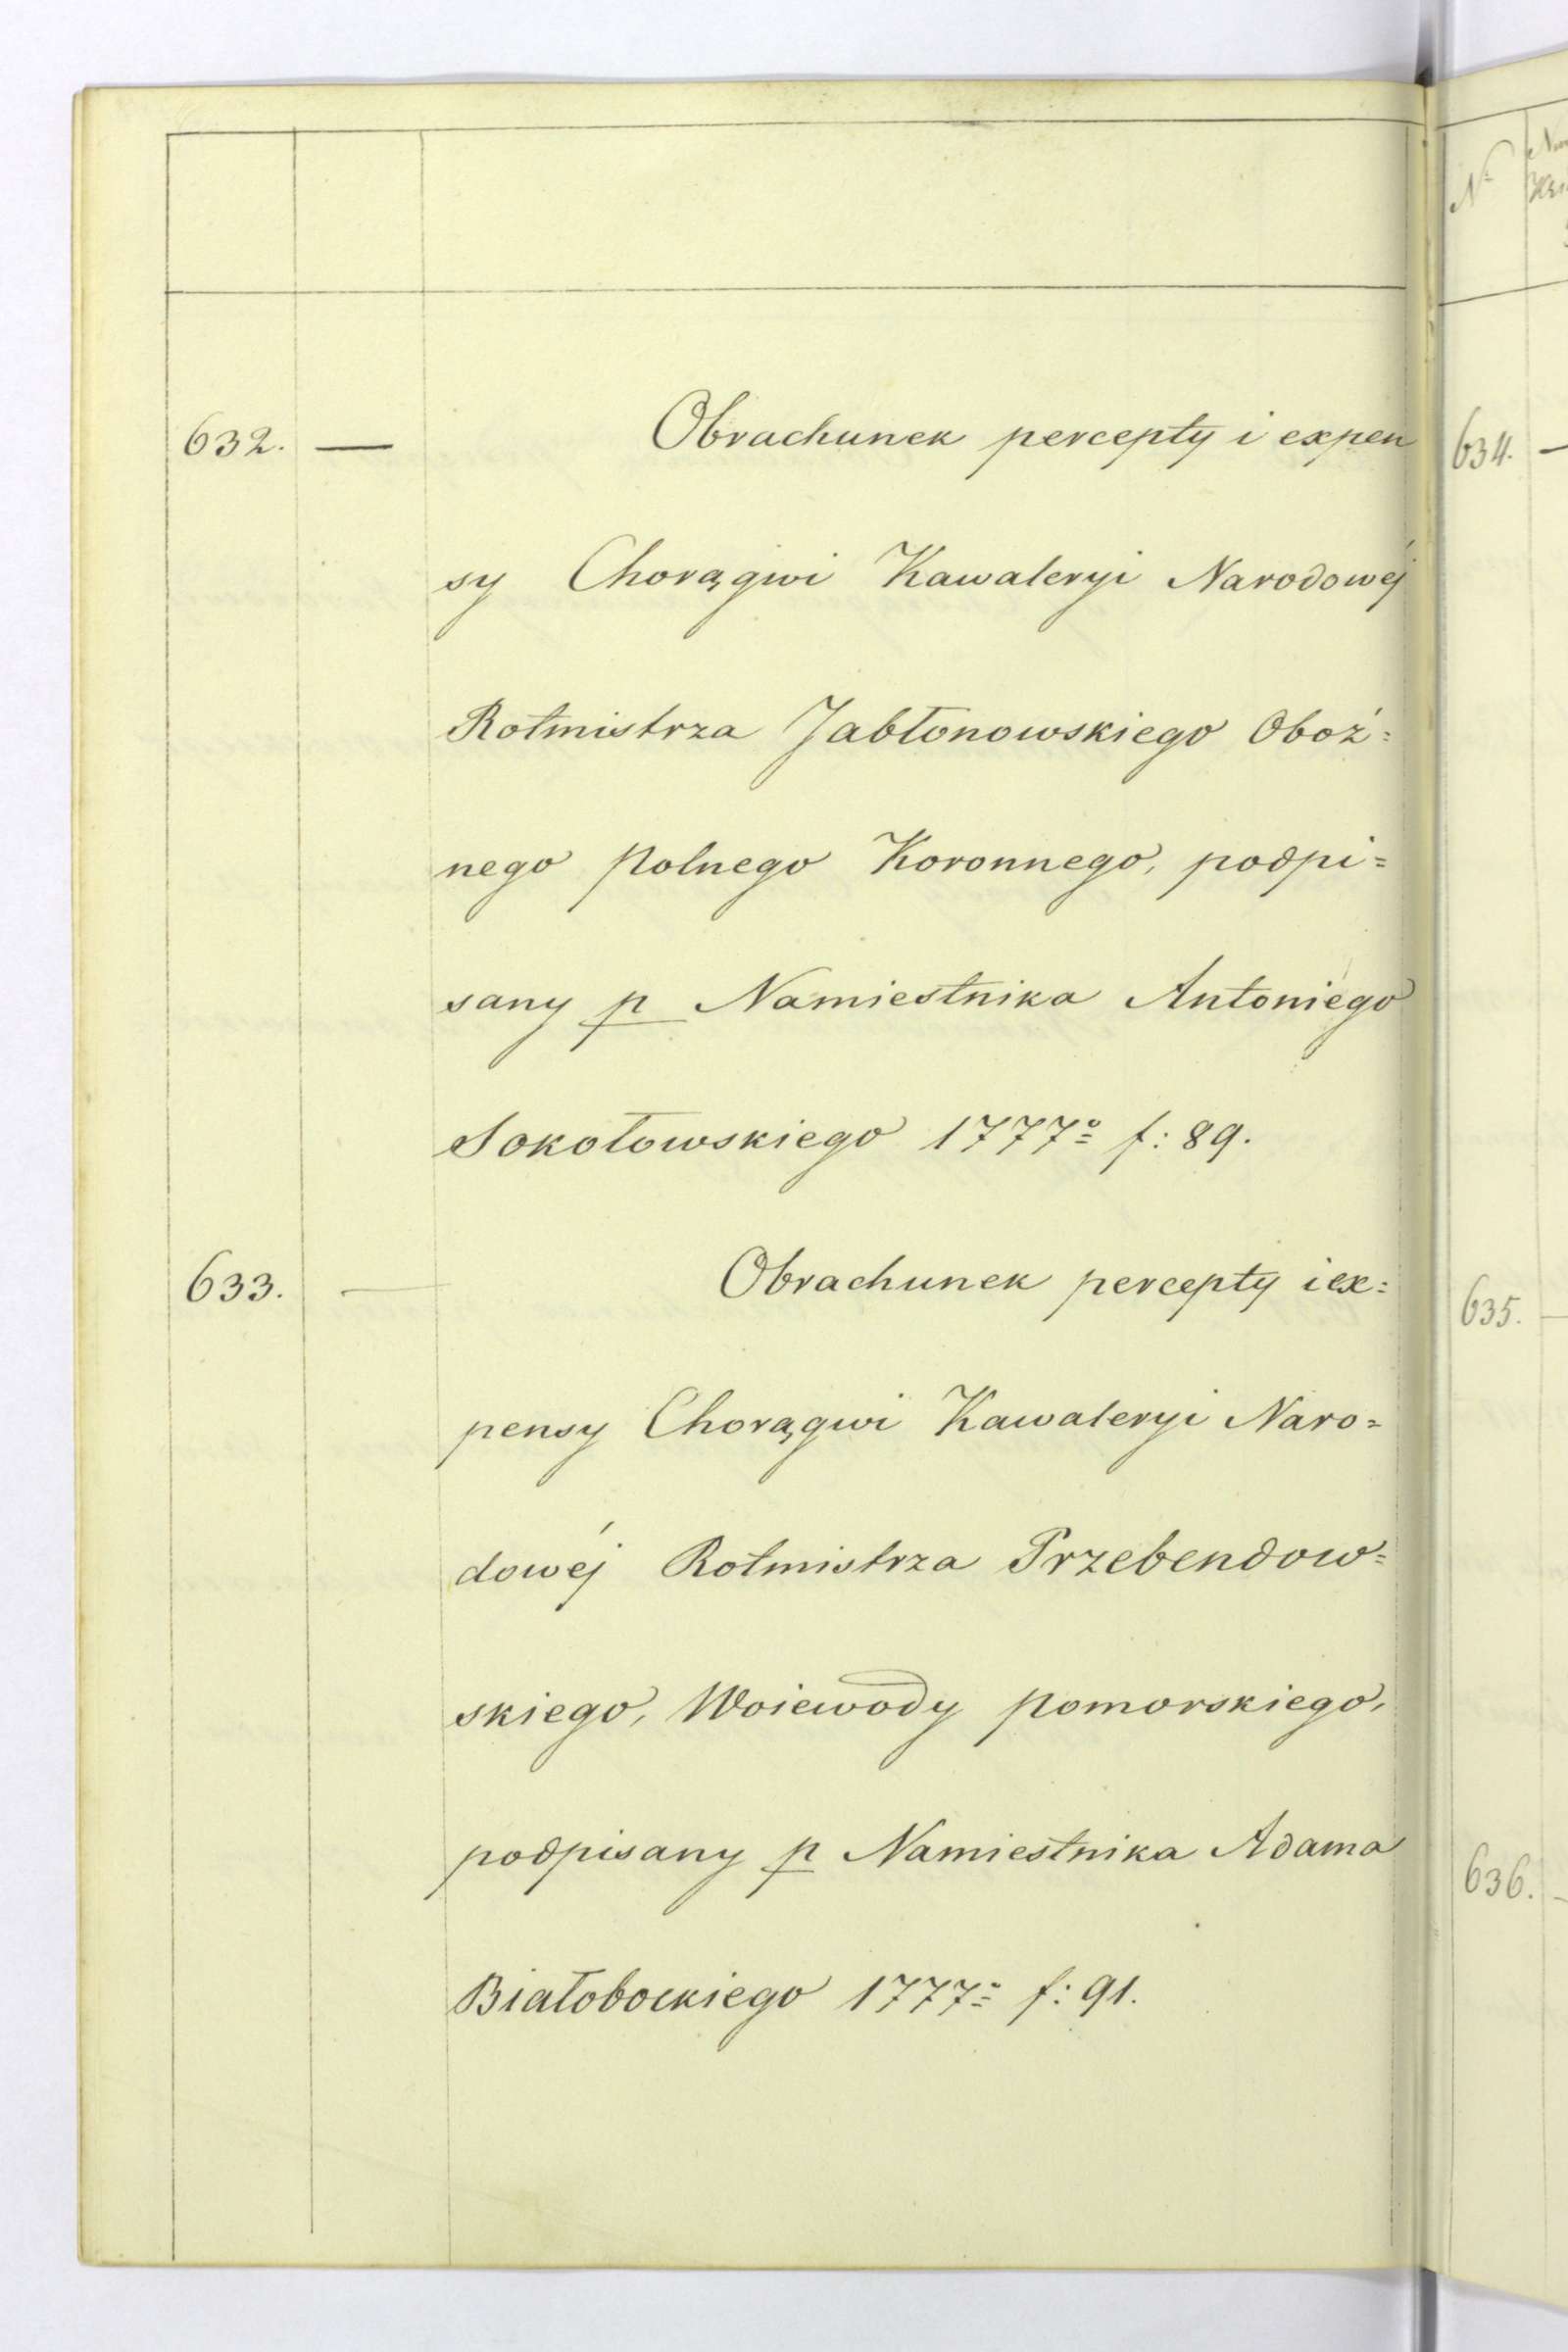 632. — Obrachunek percepty i expen
sy Chorągwi Kawaleryi Narodowéj
Rotmistrza Jabłonowskiego Oboź=
nego Polnego Koronnego, podpi=
sany p Namiestnika Antoniégo
Sokołowskiego 1777º f: 89.
633. — Obrachunek percepty i ex=
pensy Chorągwi Kawaleryi Naro=
dowéj Rotmistrza Przebendow=
skiego, Woiewody Pomorskiego,
podpisany p Namiestnika Adama
Białobockiego 1777º f: 91.
Nº
634. —
635. —
636. -